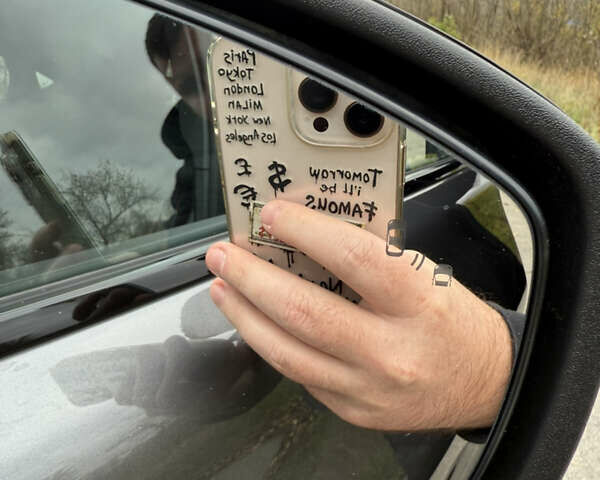 Paris
Tokyo
London
Milan
New York
Los Angeles
£
$
€
Tomorrow
i'll be
FAMOUS